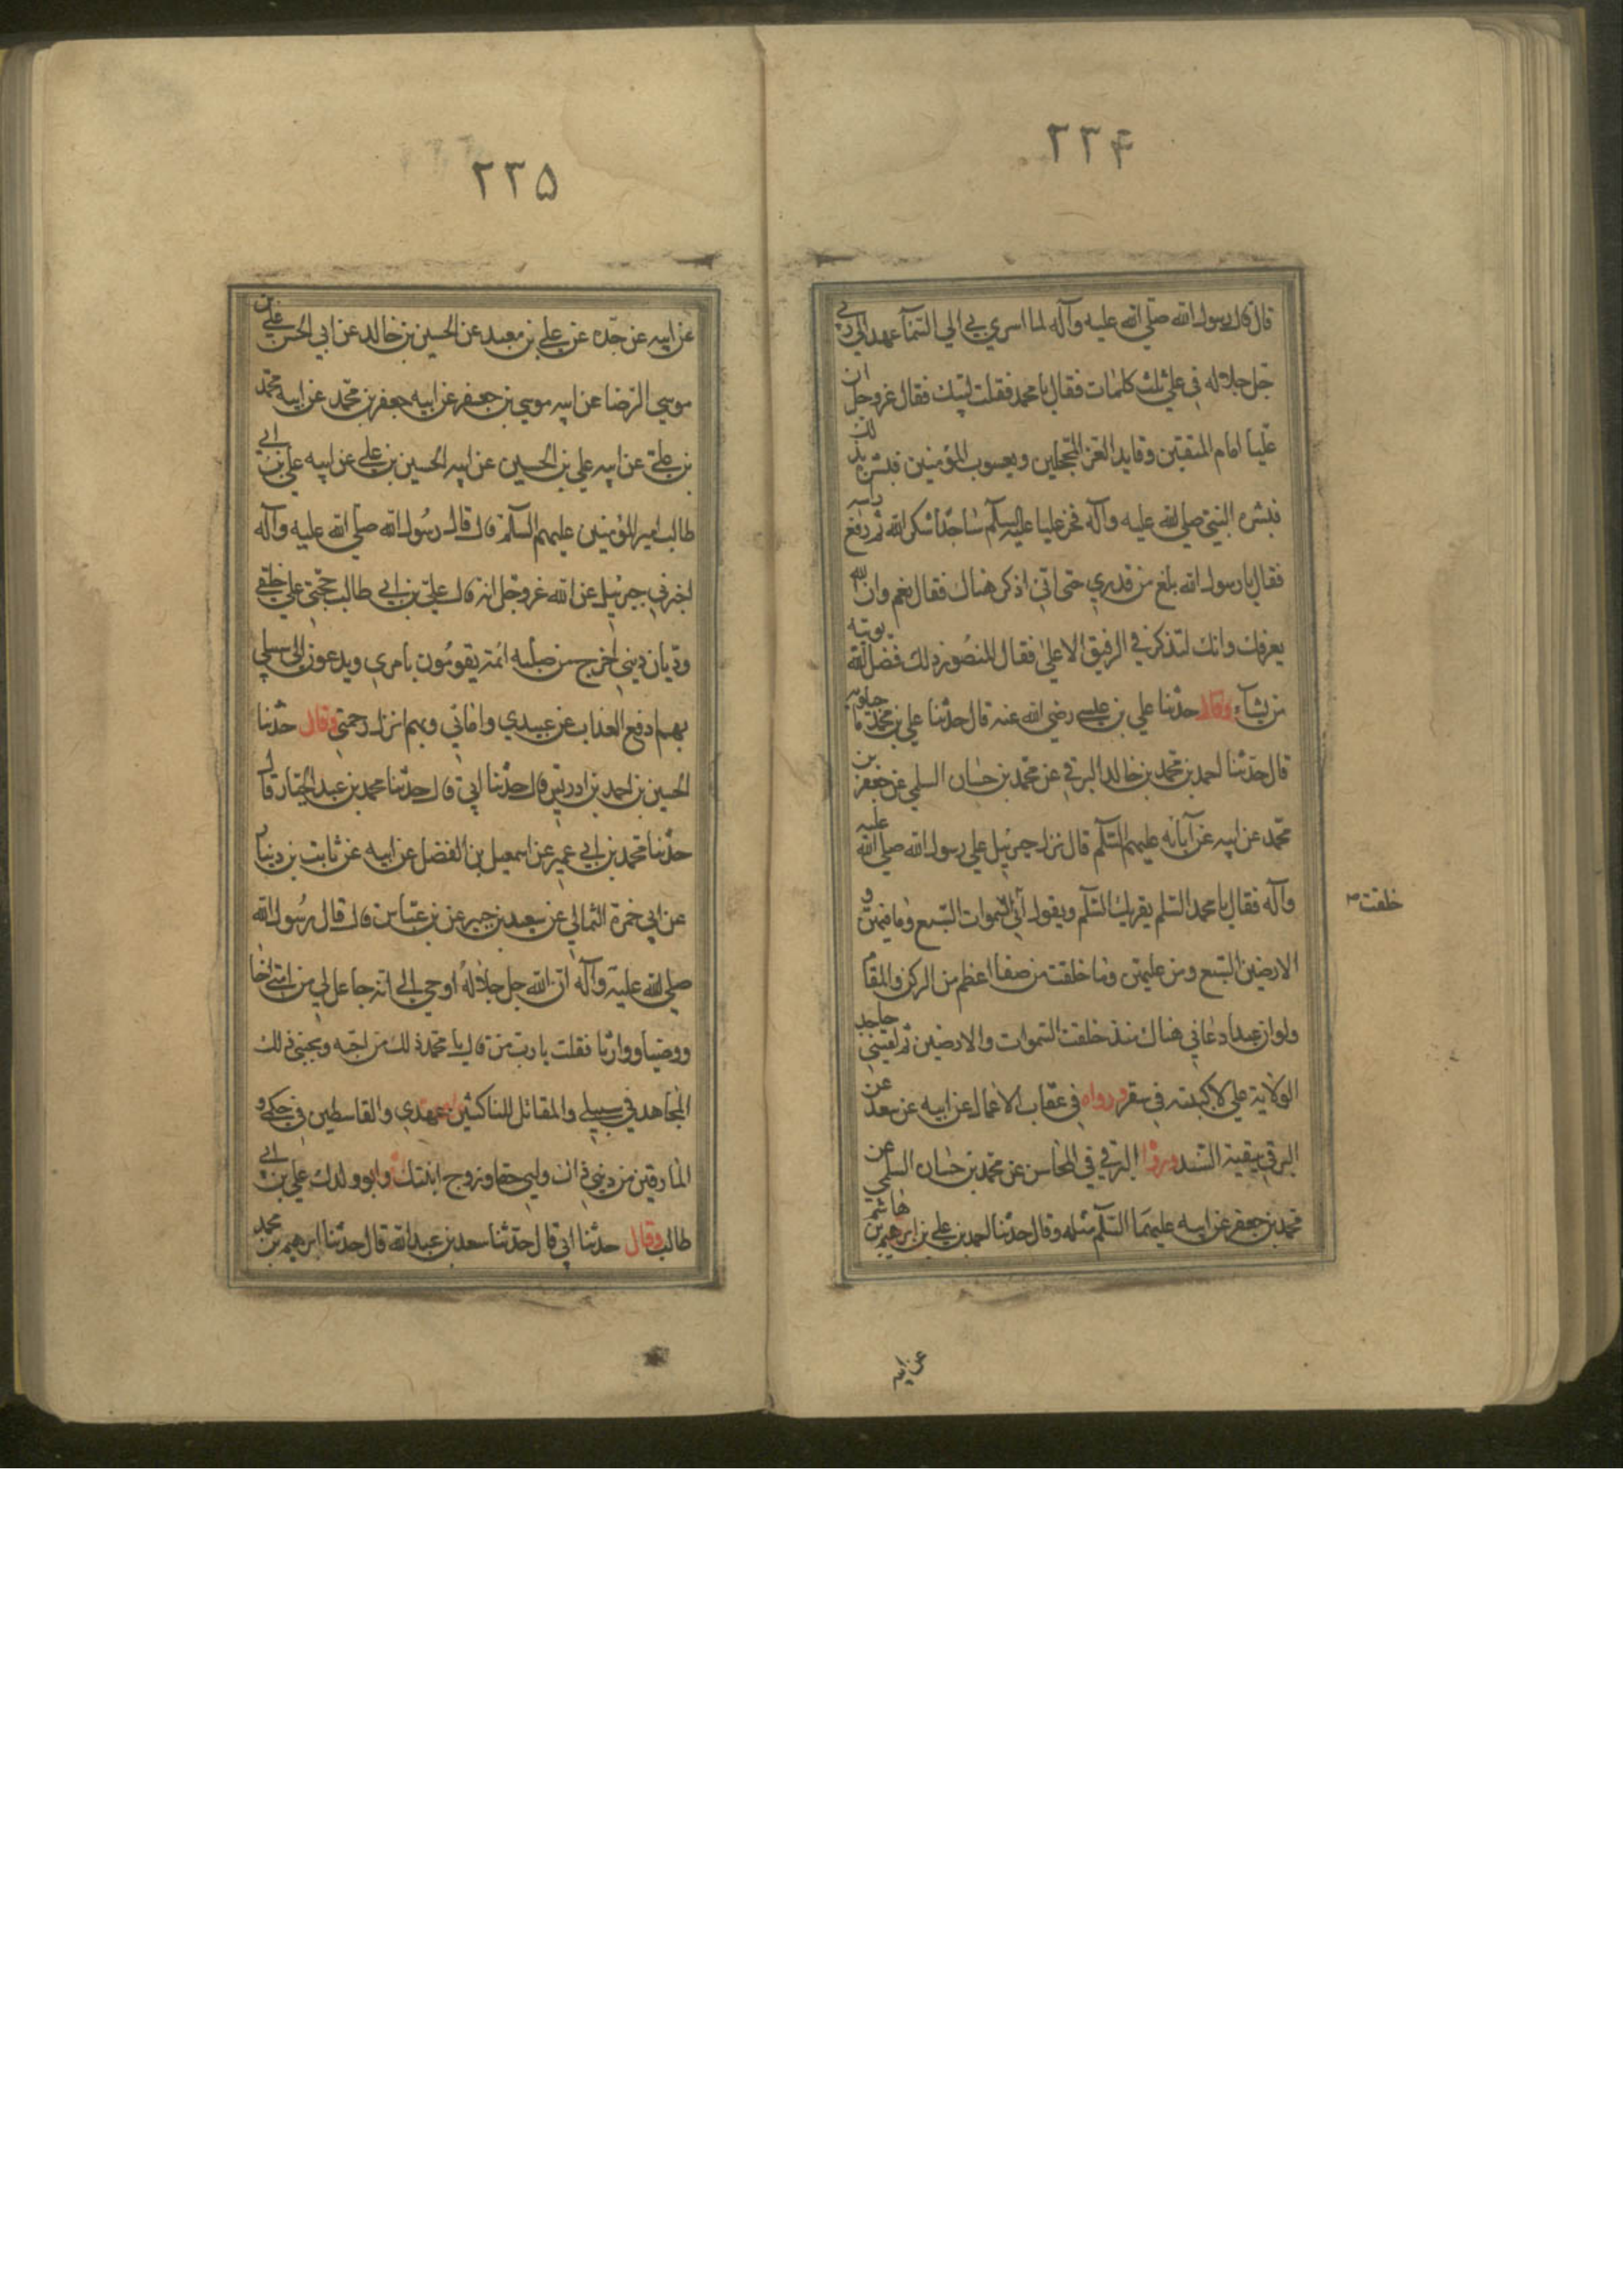 ٢٣۴
قال قال رسول الله صلي الله عليه وآله لما اسري بي الي السمآء عهد الي ربي
جل جلاله في علي ثلث كلمات فقال يا محمد فقلت لبيك فقال عز وجل ان
عليا امام المتقين وقايد الغر المحجلين ويعسوب المؤمنين فبشره بذلك
فبشره النبي صلي الله عليه وآله فخر عليا عليه السلم ساجدا شكرا لله ثم رفع راسه
فقال يا رسول الله بلغ من قدري حتي اني اذكر هناك فقال نعم وان الله
يعرفك وانك لتذكر في الرفيق الاعلي فقال المنصور ذلك فضل الله يوتيه
من يشآء وقال حدثنا علي بن عيسي رضي الله عنه قال حدثنا علي بن محمد ماجلويه
قال حدثنا احمد بن محمد بن خالد البرقي عن محمد بن حسان السلمي عن جعفر بن
محمد عن ابيه عن آبائه عليهم السلم قال نزل جبرئيل علي رسول الله صلي الله عليه
وآله فقال يا محمد السلم يقريك السلم ويقول اني السموات السبع وما فيهن و
خلقت
الارضين السبع ومن عليهن وما خلقت موضعا اعظم من الركن والمقام
ولو ان عبدا دعاني هناك منذ خلقت السموات والارضين ثم لقيني جاحد
الولاية علي لاكببته في سقر ورواه في عقاب الاعمال عن ابيه عن سعد عن
البرقي ببقية السند ورواه البرقي في المحاسن عن محمد بن حسان السلمي عن
محمد بن جعفر عن ابيه عليهما السلم مثله وقال حدثنا احمد بن علي بن ابرهيم بن هاشم
عن ابيه
٢٣۵
عن ابيه عن جده عن علي بن معبد عن الحسين بن خالد عن ابي الحسن علي بن
موسي الرضا عن ابيه موسي بن جعفر عن ابيه جعفر بن محمد عن ابيه محمد
بن علي عن ابيه علي بن الحسين عن ابيه الحسين بن علي عن ابيه علي بن ابي
طالب امير المؤمنين عليهم السلم قال قال رسول الله صلي الله عليه وآله
اخبرني جبرئيل عن الله عز وجل انه قال علي بن ابي طالب حجتي علي خلقي
وديان ديني اخرج من صلبه ائمة يقومون بامري ويدعون الي سبيلي
بهم ادفع العذاب عن عبيدي وامائي وبهم انزل رحمتي وقال حدثنا
الحسين بن احمد بن ادريس قال حدثنا ابي قال حدثنا محمد بن عبد الجبار قال
حدثنا محمد بن ابي عمير عن اسمعيل بن الفضل عن ابيه عن ثابت بن دينار
عن ابي حمزة الثمالي عن سعيد بن جبير عن بن عباس قال قال رسول الله
صلي الله عليه وآله ان الله جل جلاله اوحي الي انه جاعل لي من امتي اخا
ووصيا ووارثا فقلت يا رب من قال يا محمد ذلك من احبه ويحبني ذلك
المجاهد في سبيلي والمقاتل للناكثين عهدي والقاسطين في حكمي و
المارقين من ديني ذاك وليي حقا وزوج ابنتك وابو ولدك علي بن ابي
طالب وقال حدثنا ابي قال حدثنا سعد بن عبد الله قال حدثنا ابرهيم بن محمد